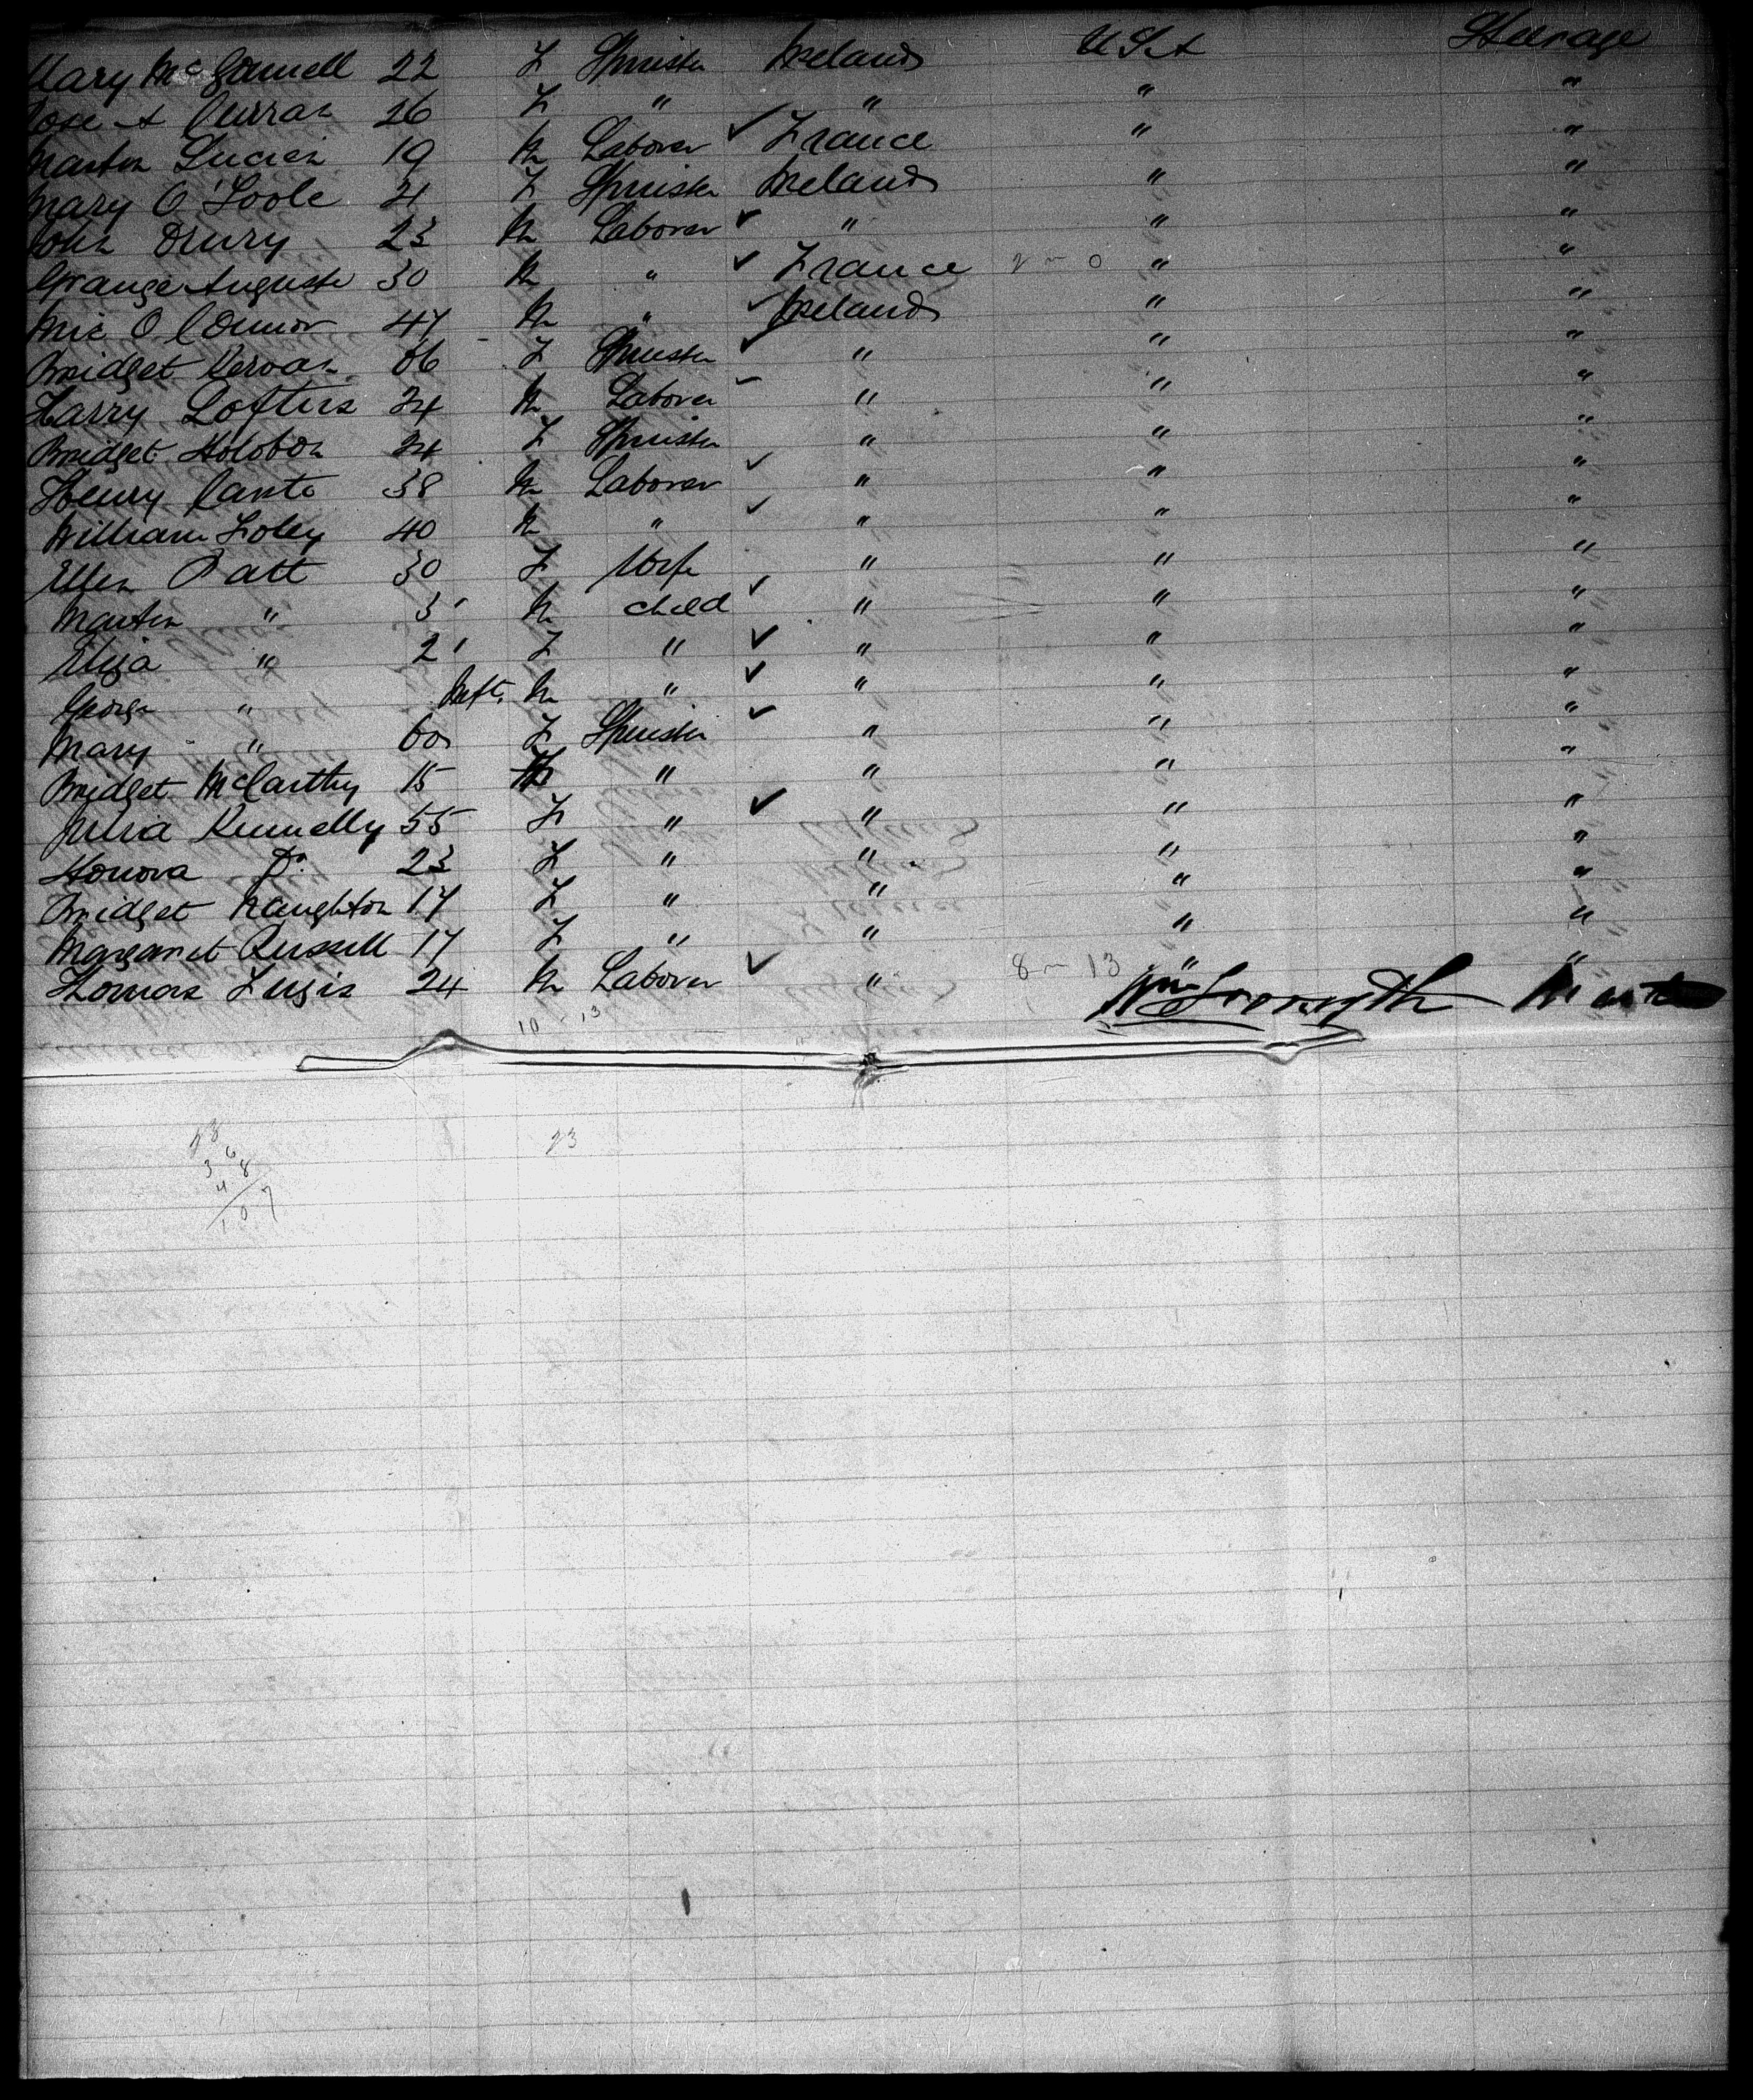 Mary McGannell 22 F Spinster Ireland U S A Steerage
Rose A Curran 26 F " " " "
Martin Lucien 19 M Laborer ✓ France " "
Mary O'Toole 21 F Spinster Ireland " "
John Drury 23 M Laborer ✓ " " "
Grange Auguste 30 M " ✓ France " "
Mic O'Connor 47 M " ✓ Ireland " "
Bridget Kervan 56 F Spinster ✓ " " "
Harry Loftus 24 M Laborer " " "
Bridget Holoboh 24 F Spinster " " "
Henry Cante 38 M Laborer ✓ " " "
William Foley 40 M " ✓ " " "
Ellen Patt 30 F Wife " " "
Martin " 3 M child ✓ " " "
Eliza " 2 F " ✓ " " "
George " Inft. M " ✓ " " "
Mary " 60 F Spinster ✓ " " "
Bridget McCarthy 15 " " " "
Julia Kennelly 55 F " ✓ " " "
Honora Do. 23 F " " " "
Bridget Naughton 17 F " " " "
Margaret Russell 17 F " " " "
Thomas 24 M Laborer ✓ " 8 - 13 " "
10 - 13 Wm Forsyth
23